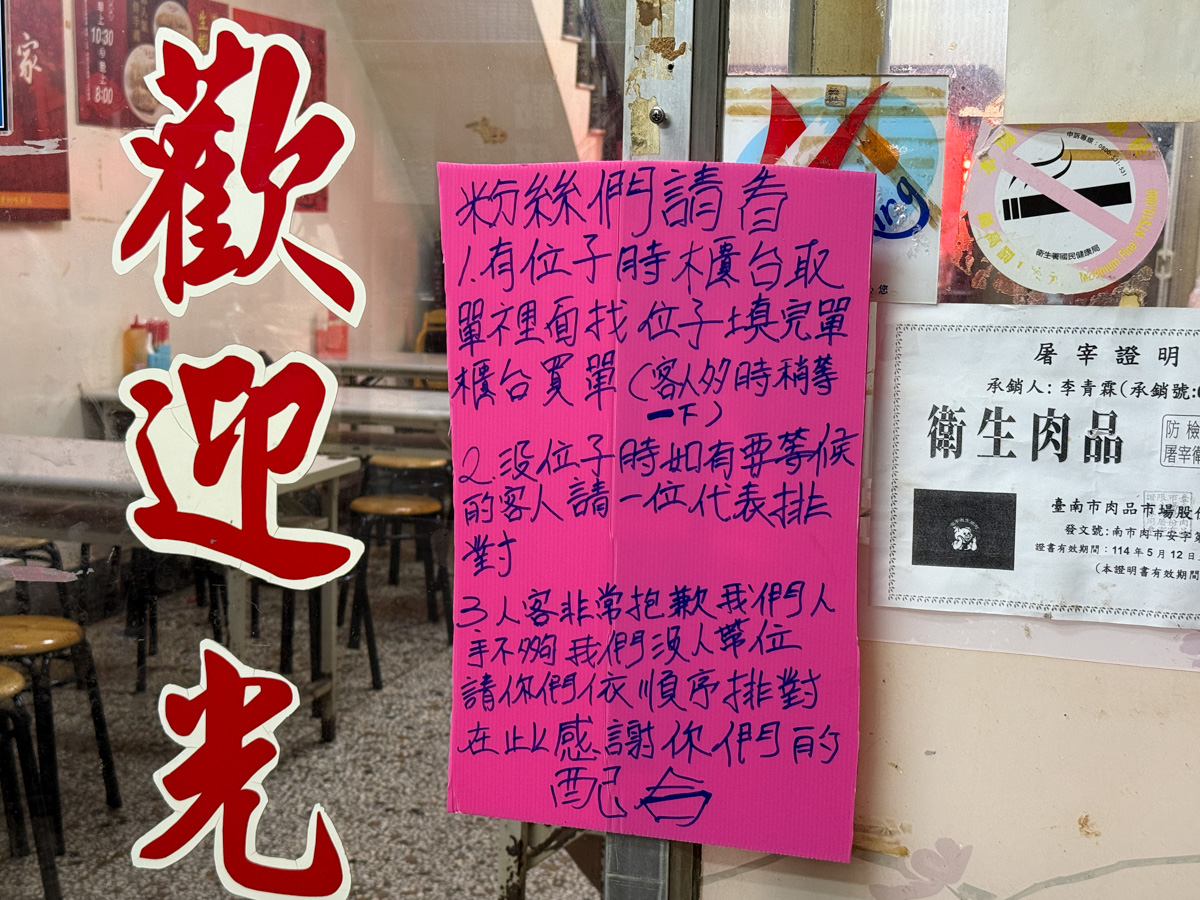 歡迎光
家
10:30
晚上
8:00
粉絲們請看
1.有位子時櫃台取
單裡面找位子填完單
櫃台買單(客人多時稍等
一下)
2.沒位子時如有要等候
的客人請一位代表排
對
3人客非常抱歉我們人
手不夠我們沒人帶位
請你們依順序排對
在此感謝你們的
配合
申訴專線:0800-531-531
衛生署國民健康局
您
屠宰證明
承銷人:李青霖(承銷號:
衛生肉品
防檢
屠宰衛
臺南市肉品市場股份
發文號:南市肉市安字第
證書有效期間:114年5月12日
(本證明書有效期間